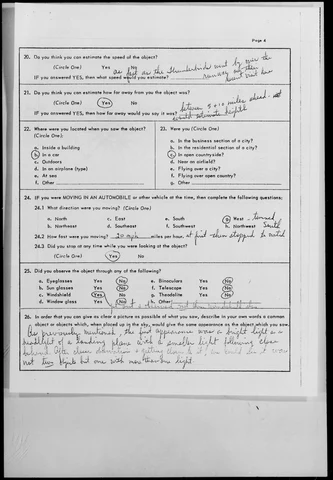 Page 4
20. Do you think you can estimate the speed of the object?
(Circle One) Yes No as fast as the Thunderbirds went by over the
IF you answered YES, then what speed would you estimate? runway on their
21. Do you think you can estimate how far away from you the object was?
(Circle One) Yes No between 5 + 10 miles ahead
IF you answered YES, then how far away would you say it was?
22. Where were you located when you saw the object?
(Circle One):
a. Inside a building
b. In a car
c. Outdoors
d. In an airplane (type)
e. At sea
f. Other
23. Were you (Circle One)
a. In the business section of a city?
b. In the residential section of a city?
c. In open countryside?
d. Near an airfield?
e. Flying over a city?
f. Flying over open country?
g. Other
24. IF you were MOVING IN AN AUTOMOBILE or other vehicle at the time, then complete the following questions:
24.1 What direction were you moving? (Circle One)
a. North c. East e. South g. West - turned
b. Northeast d. Southeast f. Southwest h. Northwest South
24.2 How fast were you moving? 20 mph miles per hour. at first - then stopped to watch
24.3 Did you stop at any time while you were looking at the object?
(Circle One) Yes No
25. Did you observe the object through any of the following?
a. Eyeglasses Yes No e. Binoculars Yes No
b. Sun glasses Yes No f. Telescope Yes No
c. Windshield Yes No g. Theodolite Yes No
d. Window glass Yes No h. Other
26. In order that you can give as clear a picture as possible of what you saw, describe in your own words a common
object or objects which, when placed up in the sky, would give the same appearance as the object which you saw.
As previously mentioned, the first appearance was a bright light as a
headlight of a landing plane with a smaller light following close
behind. After closer observation + getting closer to it, we could see it were
not two objects but one with more than one light